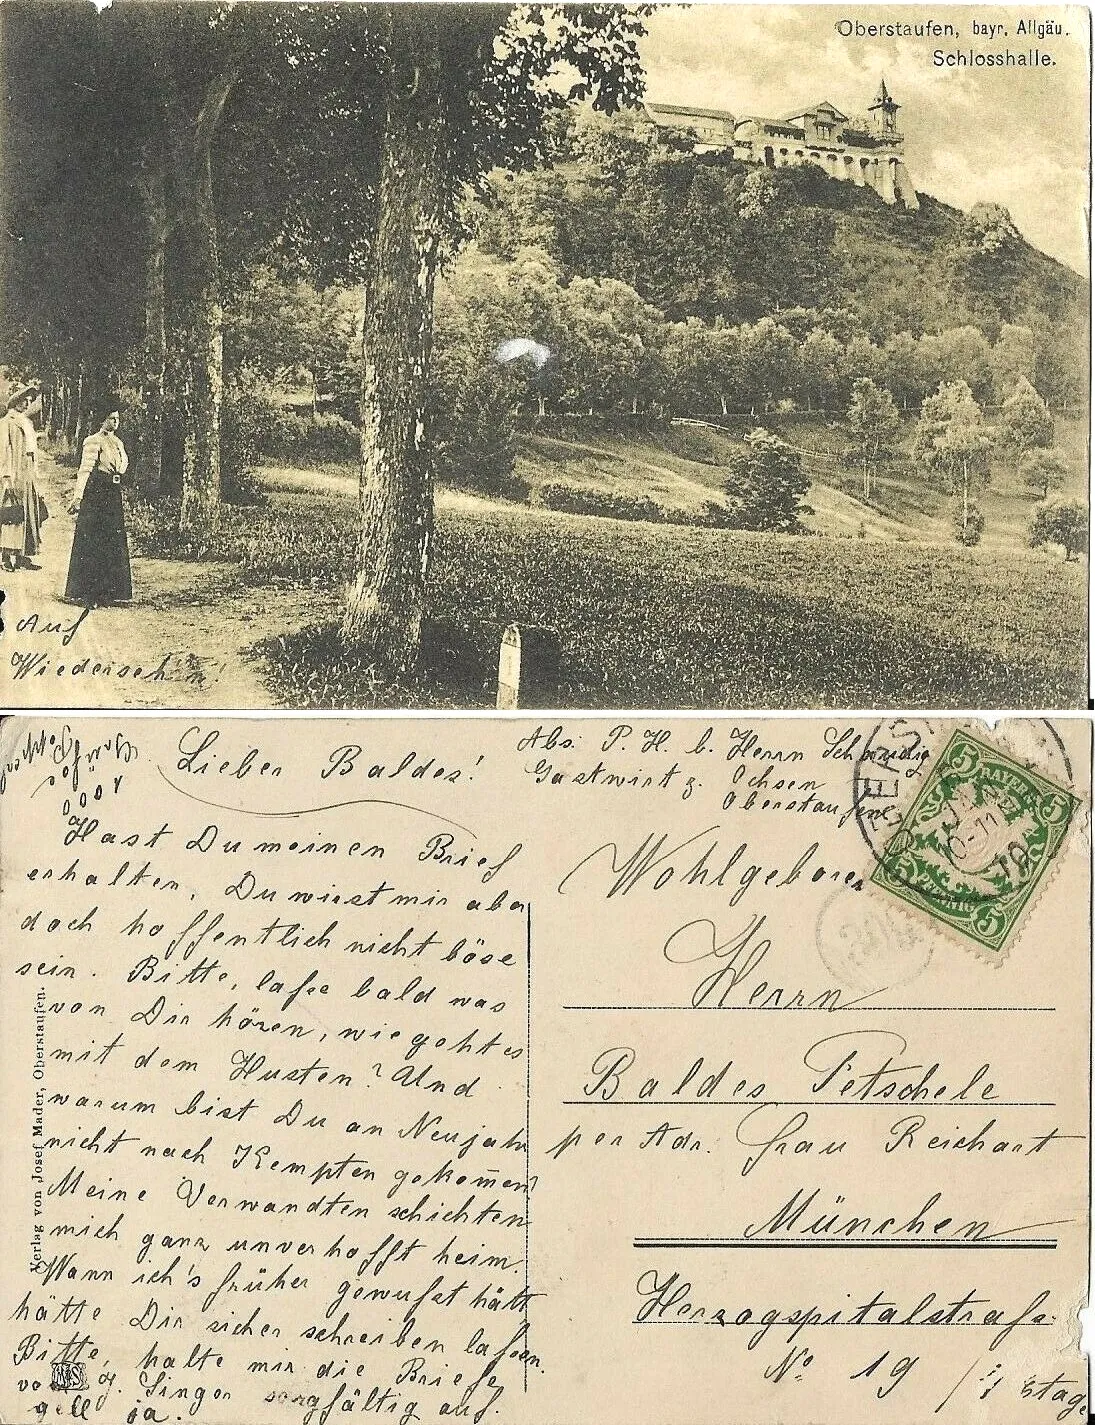 Oberstaufen, bayr. Allgäu.
Schlosshalle.
Auf
Wiedersehn!
Lieber Baldes!
Hast Du meinen Brief
erhalten. Du wirst mir aber
doch hoffentlich nicht böse
sein. Bitte, lasse bald was
von Dir hören, wie geht es
mit dem Husten? Und
warum bist Du an Neujahr
nicht nach Kempten gekommen?
Meine Verwandten schickten
mich ganz unverhofft heim.
Wann ich's früher gewußt hätt
hätte Dir sicher schreiben lassen.
Bitte, halte mir die Briefe
g. Singer sorgfältig auf.
gell ja.
1000
Grüße
Verlag von Josef Mader, Oberstaufen.
Abs: P. H. b. Herrn
Gastwirt z. Ochsen
Oberstaufen
BAYERN
5
5
5
5
PFENNIG
Wohlgeboren
Herrn
Baldes Petschele
per Adr. Frau Reichart
München
Herzogspitalstraße
No 19 / Etage